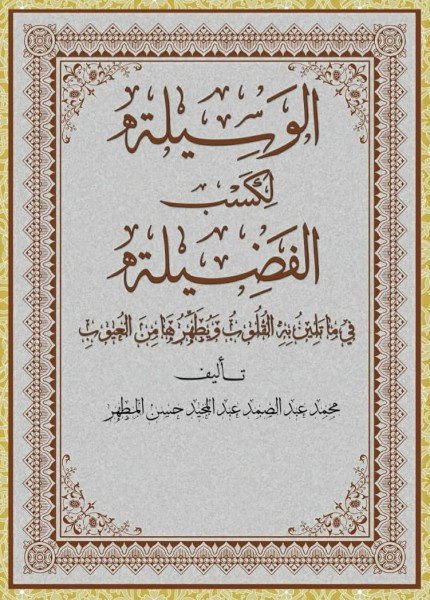 الوَسِيلة
لِكَسْب
الفَضِيلة
في مَا تَلِينُ بِهِ القُلُوبُ وَيُطَهِّرُهَا مِنَ العُيُوبِ
تأليف
محمد عبد الصمد عبد المجيد حسن المطهر